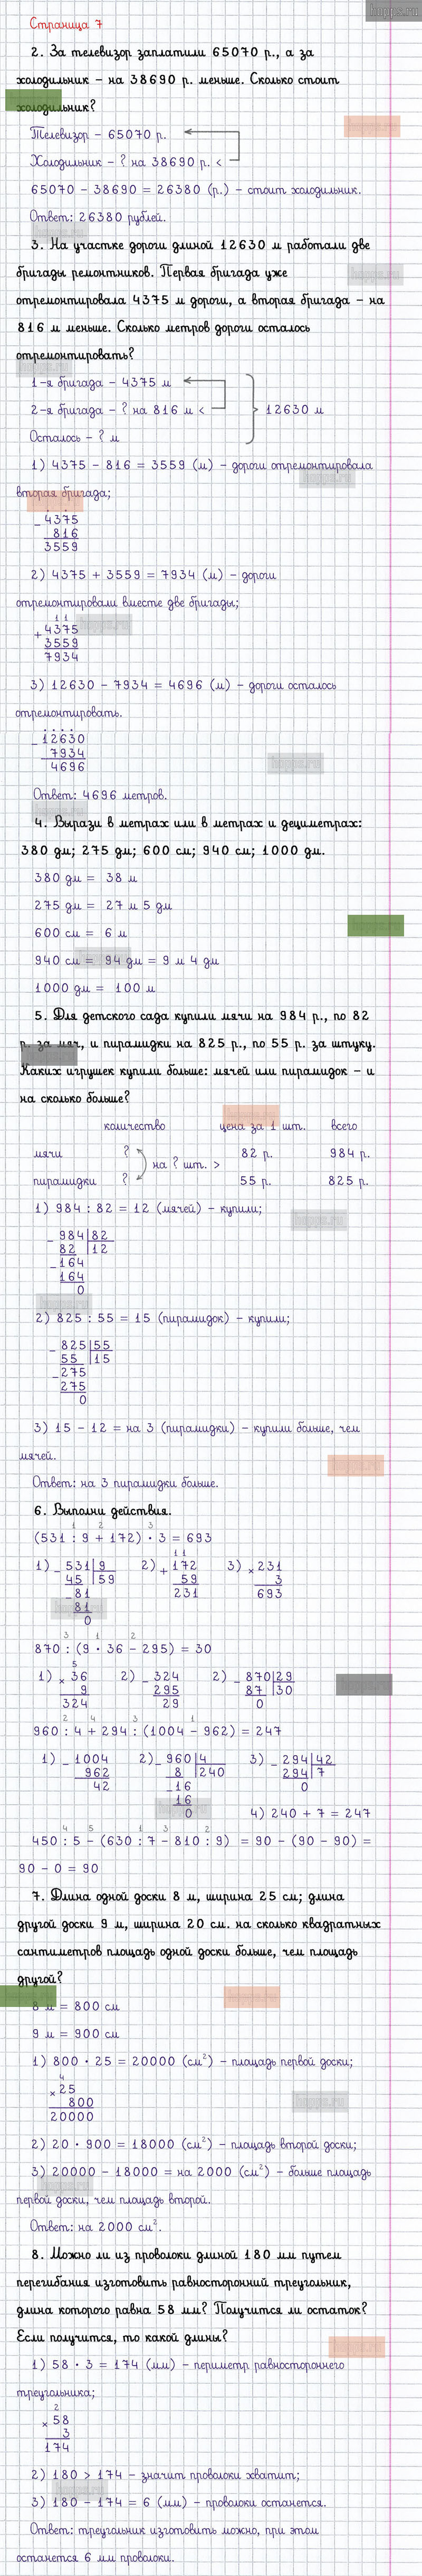 Страница 7
2. За телевизор заплатили 65070 р., а за
холодильник – на 38690 р. меньше. Сколько стоит
холодильник?
Телевизор – 65070 р.
Холодильник – ? на 38690 р. <
65070 – 38690 = 26380 (р.) – стоит холодильник.
Ответ: 26380 рублей.
3. На участке дороги длиной 12630 м работали две
бригады ремонтников. Первая бригада уже
отремонтировала 4375 м дороги, а вторая бригада – на
816 м меньше. Сколько метров дороги осталось
отремонтировать?
1-я бригада – 4375 м
2-я бригада – ? на 816 м < 12630 м
Осталось – ? м
1) 4375 – 816 = 3559 (м) – дороги отремонтировала
вторая бригада;
– 4375
816
3559
2) 4375 + 3559 = 7934 (м) – дороги
отремонтировали вместе две бригады;
1 1
+ 4375
3559
7934
3) 12630 – 7934 = 4696 (м) – дороги осталось
отремонтировать.
– 12630
7934
4696
Ответ: 4696 метров.
4. Вырази в метрах или в метрах и дециметрах:
380 дм; 275 дм; 600 см; 940 см; 1000 дм.
380 дм = 38 м
275 дм = 27 м 5 дм
600 см = 6 м
940 см = 94 дм = 9 м 4 дм
1000 дм = 100 м
5. Для детского сада купили мячи на 984 р., по 82
р. за мяч, и пирамидки на 825 р., по 55 р. за штуку.
Каких игрушек купили больше: мячей или пирамидок – и
на сколько больше?
количество цена за 1 шт. всего
мячи ? 82 р. 984 р.
на ? шт. >
пирамидки ? 55 р. 825 р.
1) 984 : 82 = 12 (мячей) – купили;
– 984 82
82 12
– 164
164
0
2) 825 : 55 = 15 (пирамидок) – купили;
– 825 55
55 15
– 275
275
0
3) 15 – 12 = на 3 (пирамидки) – купили больше, чем
мячей.
Ответ: на 3 пирамидки больше.
6. Выполни действия.
1 2 3
(531 : 9 + 172) · 3 = 693
1) – 531 9 2) + 172 3) × 231
45 59 59 3
– 81 231 693
81
0
3 1 2
870 : (9 · 36 – 295) = 30
1) × 36 2) – 324 2) – 870 29
9 295 87 30
324 29 0
2 4 3 1
960 : 4 + 294 : (1004 – 962) = 247
1) – 1004 2) – 960 4 3) – 294 42
962 8 240 294 7
42 – 16 0
16
0 4) 240 + 7 = 247
4 5 1 3 2
450 : 5 – (630 : 7 – 810 : 9) = 90 – (90 – 90) =
90 – 0 = 90
7. Длина одной доски 8 м, ширина 25 см; длина
другой доски 9 м, ширина 20 см. на сколько квадратных
сантиметров площадь одной доски больше, чем площадь
другой?
8 м = 800 см
9 м = 900 см
1) 800 · 25 = 20000 (см²) – площадь первой доски;
4
× 25
800
20000
2) 20 · 900 = 18000 (см²) – площадь второй доски;
3) 20000 – 18000 = на 2000 (см²) – больше площадь
первой доски, чем площадь второй.
Ответ: на 2000 см².
8. Можно ли из проволоки длиной 180 мм путем
перегибания изготовить равносторонний треугольник,
длина которого равна 58 мм? Получится ли остаток?
Если получится, то какой длины?
1) 58 · 3 = 174 (мм) – периметр равностороннего
треугольника;
2
× 58
3
174
2) 180 > 174 – значит проволоки хватит;
3) 180 – 174 = 6 (мм) – проволоки останется.
Ответ: треугольник изготовить можно, при этом
останется 6 мм проволоки.